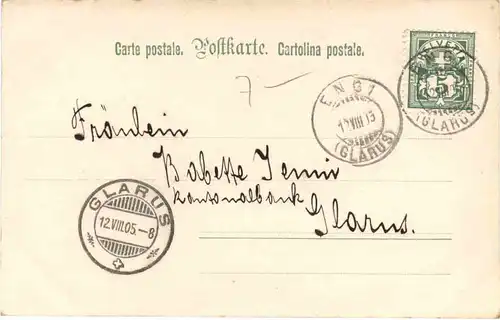 Carte postale. Postkarte. Cartolina postale.
FRANCO
HELVETIA
5
ENGI
(GLARUS)
ENGI
(GLARUS)
7
Fräulein
Babette Jenni
Kantonalbank
Glarus.
GLARUS
12.VIII.05.-8